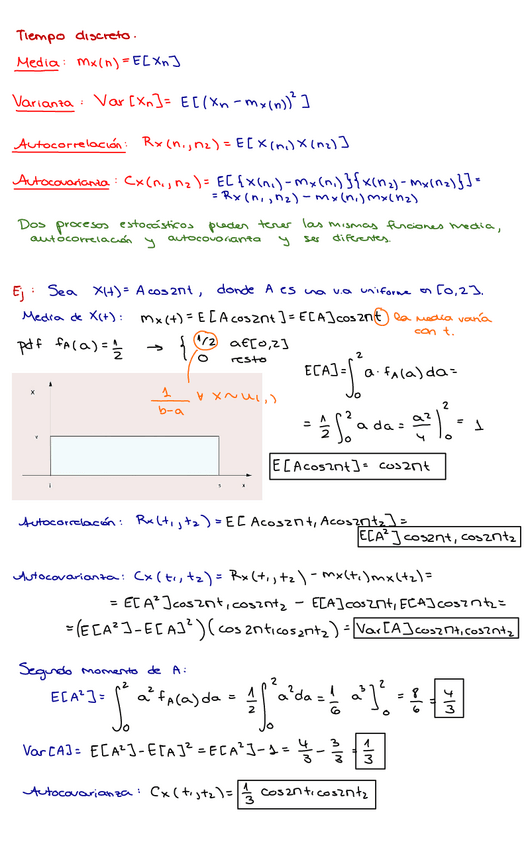 Tiempo discreto.
Media: mx(n) = E[Xn]
Varianza: Var[Xn] = E[(Xn - mx(n))²]
Autocorrelación: Rx(n₁, n₂) = E[X(n₁)X(n₂)]
Autocovarianza: Cx(n₁, n₂) = E[{X(n₁) - mx(n₁)}{X(n₂) - mx(n₂)}] =
= Rx(n₁, n₂) - mx(n₁)mx(n₂)
Dos procesos estocásticos pueden tener las mismas funciones media,
autocorrelación y autocovarianza y ser diferentes.
Ej: Sea X(t) = A cos2πt, donde A es una v.a uniforme en [0,2].
Media de X(t): mx(t) = E[A cos2πt] = E[A] cos2πt la media varía
con t.
pdf fA(a) = 1/2 → { 1/2 a∈[0,2]
0 resto
E[A] = ∫₀² a·fA(a)da =
1/(b-a) ∀ X~U(,)
= 1/2 ∫₀² a da = a²/4 |₀² = 1
E[Acos2πt] = cos2πt
Autocorrelación: Rx(t₁, t₂) = E[Acos2πt₁Acos2πt₂] =
E[A²]cos2πt₁cos2πt₂
Autocovarianza: Cx(t₁, t₂) = Rx(t₁, t₂) - mx(t₁)mx(t₂) =
= E[A²]cos2πt₁cos2πt₂ - E[A]cos2πt₁E[A]cos2πt₂ =
= (E[A²] - E[A]²)(cos2πt₁cos2πt₂) = Var[A]cos2πt₁cos2πt₂
Segundo momento de A:
E[A²] = ∫₀² a² fA(a)da = 1/2 ∫₀² a²da = 1/6 a³]₀² = 8/6 = 4/3
Var[A] = E[A²] - E[A]² = E[A²] - 1 = 4/3 - 3/3 = 1/3
Autocovarianza: Cx(t₁, t₂) = 1/3 cos2πt₁cos2πt₂